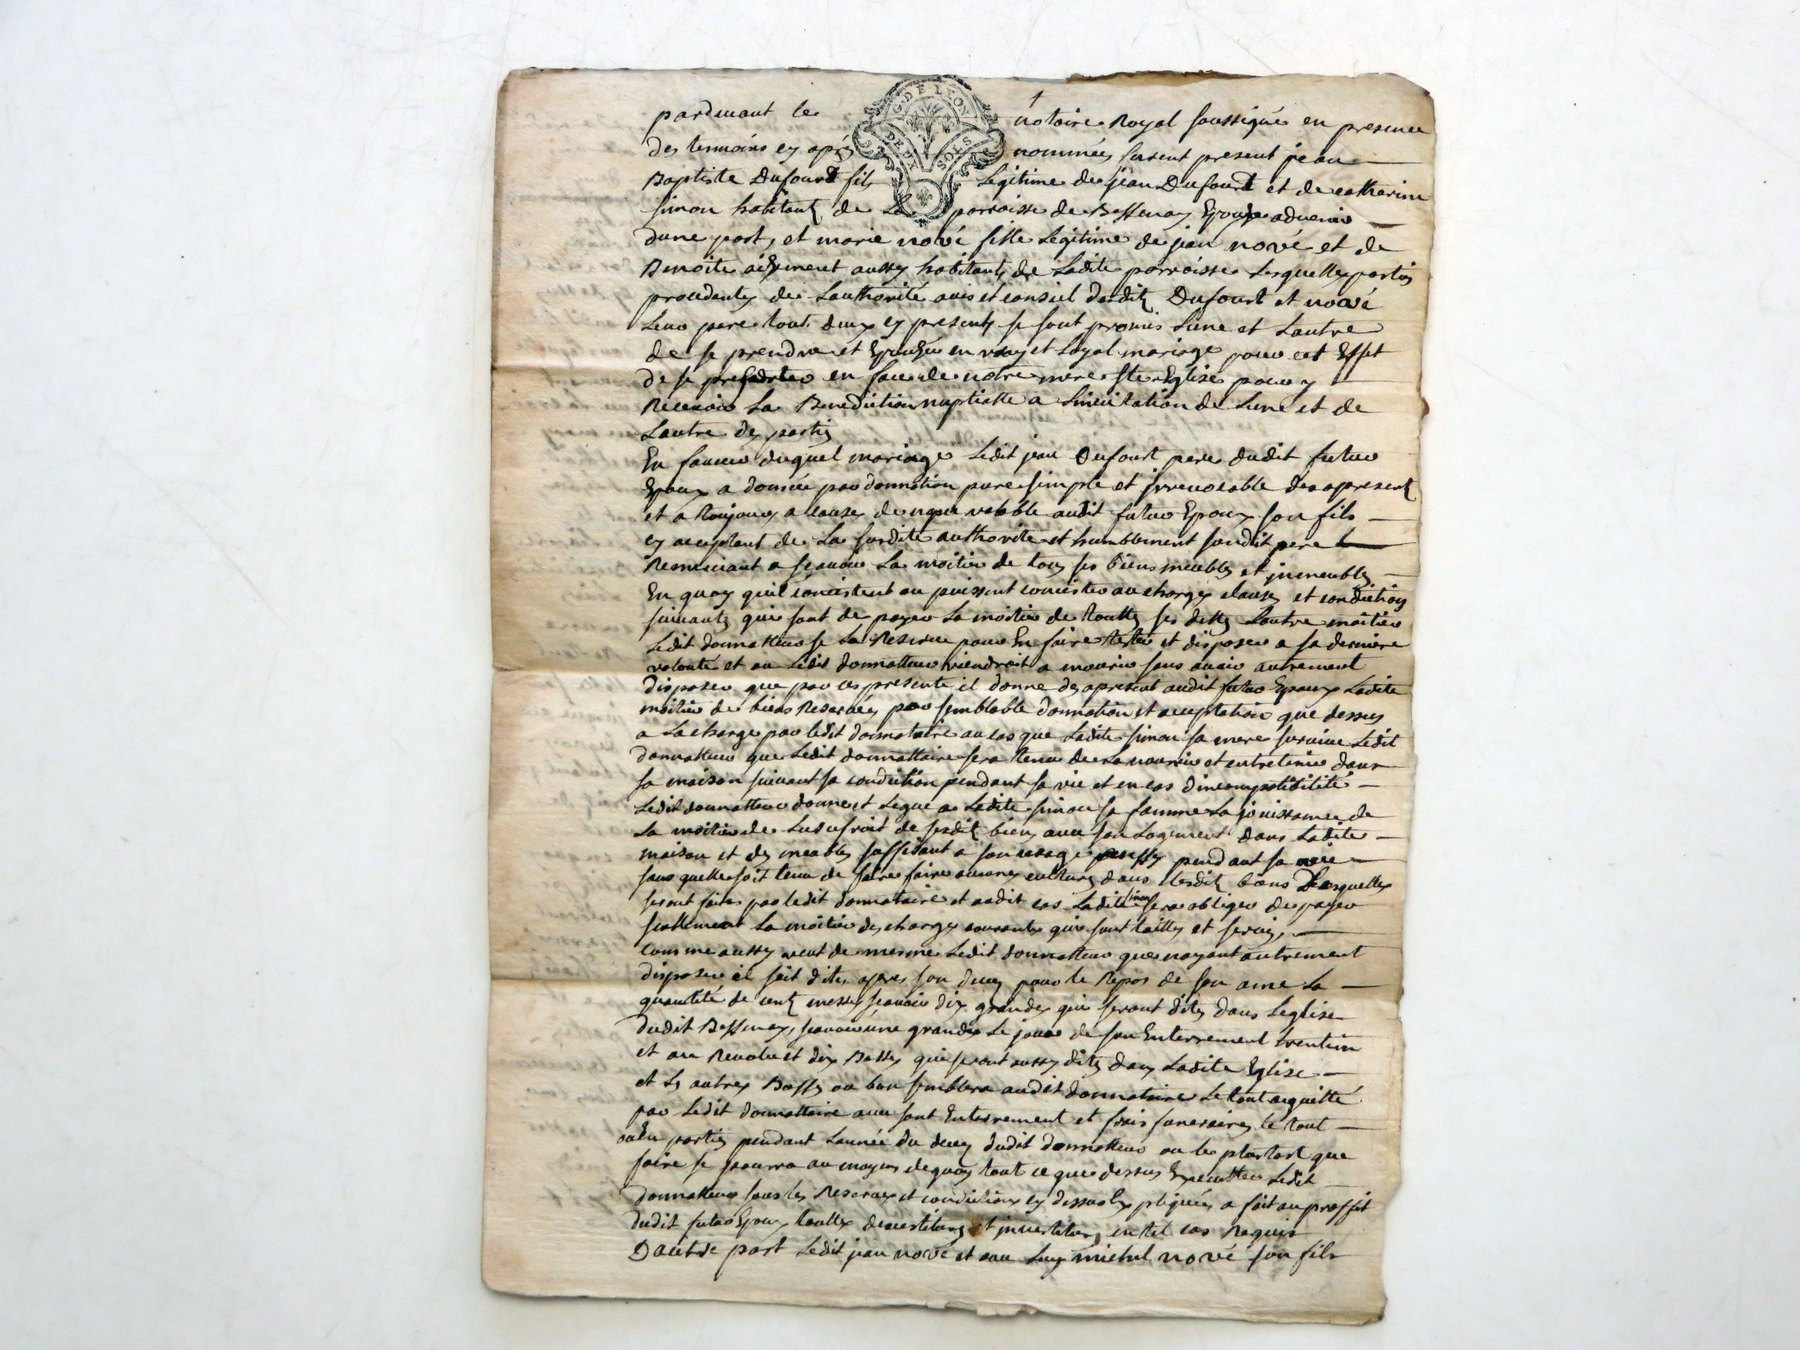 G. DE LYON
DEUX SOLS
pardevant le notaire Royal soussigné en presence
des temoins cy apres nommées furent present jean
Baptiste Dufourt fils Legitime de jean Dufourt et de catherine
simon habitants de La parroisse de Bessenay Epoux advenir
dune part, et marie nové fille Legitime de jean nové et de
Benoite aussy habitants de Ladite parroisse Lesquelles parties
procedantes de Lauthorité avis et conseil desdits Dufourt et nové
Leur pere tout deux cy presents se sont promis Lune et Lautre
de se prendre et Epouser en vray et Loyal mariage pour cet Effet
de se presenter en face de notre mere Ste Eglise pour y
Recevoir La Benediction nuptialle a Linvitation de Lune et de
Lautre des parties
En faveur duquel mariage Ledit jean Dufourt pere dudit futur
Epoux a donnée par donnation pure simple et irrevocable des apresent
et a toujours a cause de nopce valable audit futur Epoux son fils
cy acceptant de La susdite authorité et humblement sondit pere
Remerciant a scavoir La moitier de tous ses biens meubles et immeubles
En quoy quil consistent ou puissent consister au charges clauses et conditions
suivantes qui sont de payer La moitier de touttes ses dettes Lautre moitier
Ledit donnatteur se La Reserve pour En faire tester et disposer a sa derniere
volonté et ou Ledit donnatteur viendroit a mourir sans avoir autrement
disposer que par ces presente il donne des apresent audit futur Epoux Ladite
moitier de biens Reservés par semblable donnation et acceptation que dessus
a La charge par ledit donnataire au cas que Ladite simon sa mere survive Ledit
donnatteur que Ledit donnattaire sera tenu de La nourrir et entretenir dans
sa maison suivant sa condition pendant sa vie et en cas dincompatibilité
Ledit donnatteur donne et Legue a Ladite simon sa femme La jouissance de
La moitier de Lusufruit de sesdits biens avec son Logement dans Ladite
maison et des meubles suffisant a son usage pendant sa vie
sans quelle soit tenu de faire faire aucunes cultures dans lesdits biens Lesquelles
seront faites par ledit donnataire et audit cas Ladite simon sera obliger de payer
seullement La moitier des charges courantes qui sont tailles et servis,
comme aussy veut de mesme Ledit donnatteur que nayant autrement
disposer il soit dites apres son deces pour le Repos de son ame La
quantité de cents messes scavoir dix grandes qui seront dites dans Leglise
dudit Bessenay, scavoir une grande Le jour de son Enterrement trentin
et au Revolu et dix Basses qui seront aussy dites dans Ladite Eglise
et Les autres Basses ou bon semblera audit donnataire Le tout acquitté
par Ledit donnattaire avec sont Enterrement et frais funeraires le tout
ou En parties pendant Lannée du deces dudit donnatteur ou le plustart que
faire se pourra au moyens de quoy tout ce que dessus Executter Ledit
donnatteur sous les Reserves et conditions cy dessus Expliquées a fait au proffit
dudit futur Epoux touttes devestitures et investitures en tel cas Requis
Dautre part Ledit jean nové et avec Luy michel nové son fils